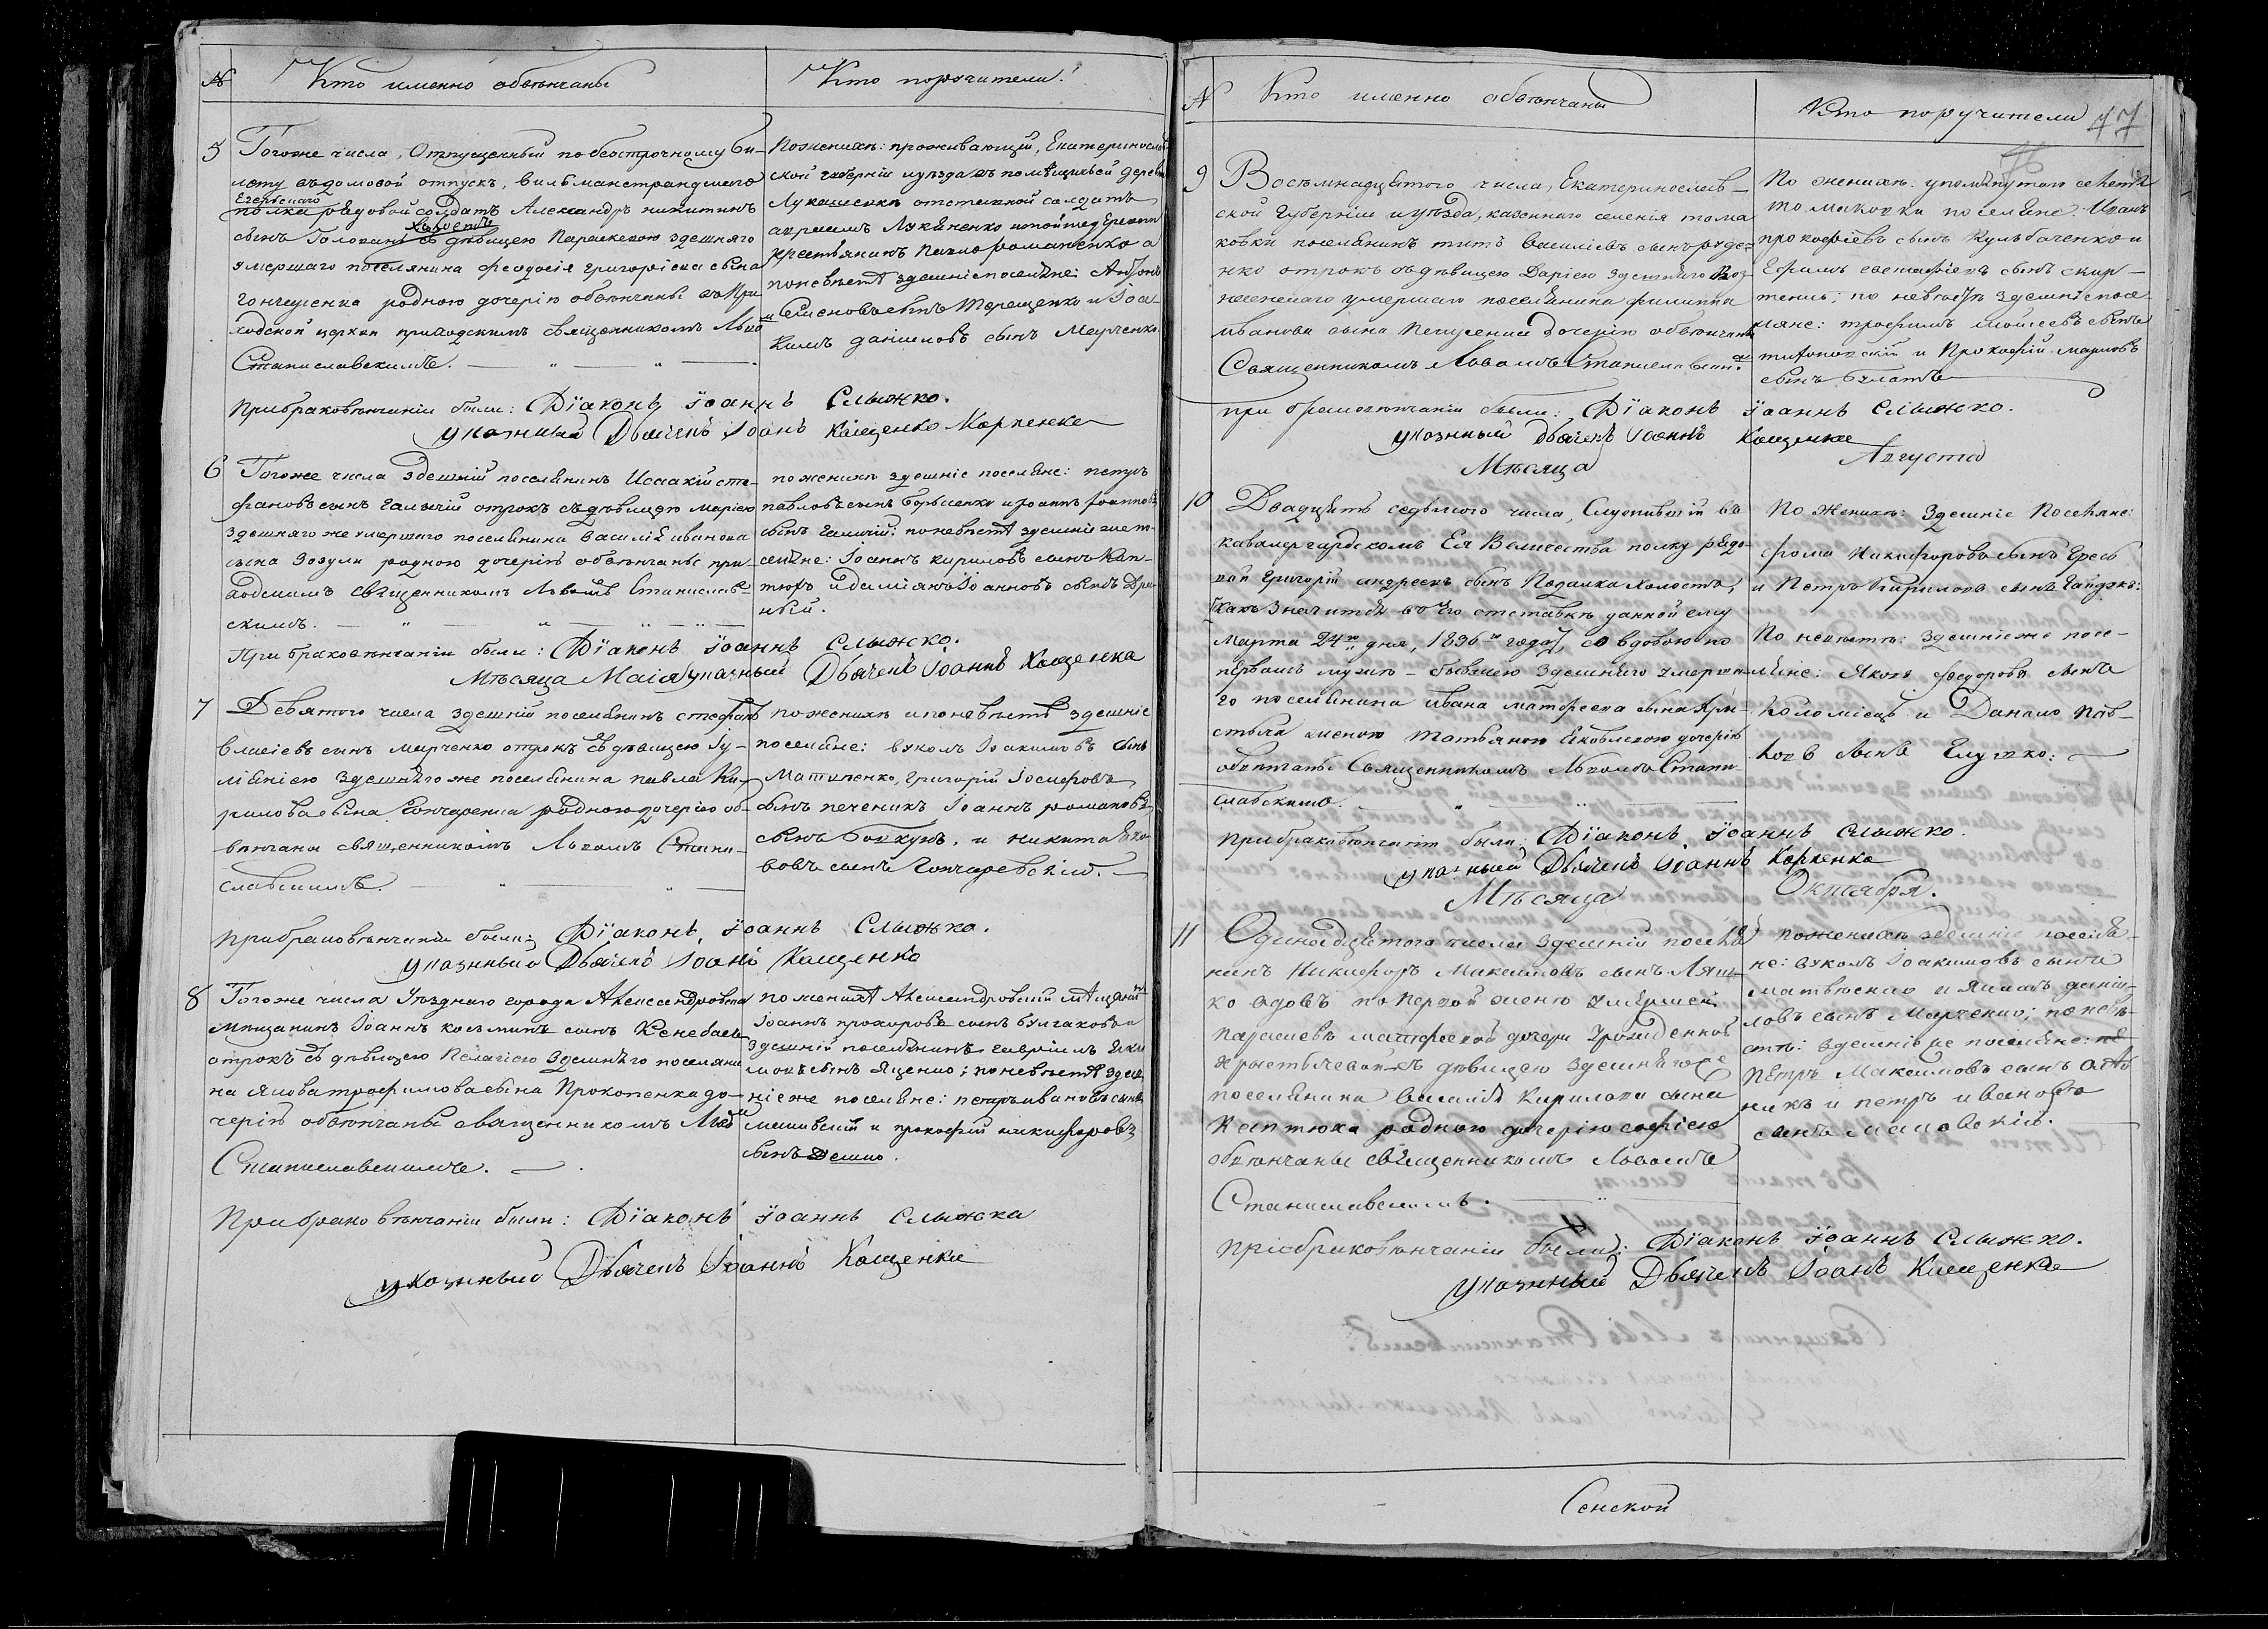 № Кто именно обвѣнчаны
Кто поручители.
5 Тогоже числа, Отпущенный по безсрочному би-
лету въ домовой отпускъ, вильманстрандскаго
Егерскаго
полка рядовой солдатъ Александръ никитинъ
холостъ
сынъ Головань съ дѣвицею Параскевою здешняго
умершаго поселянина феодосія григоріева сына
Гончаренка родною дочерію обвѣнчаны въ При-
ходской церкви приходскимъ священникомъ Львомъ
Станиславскимъ.
Поженихѣ: проживающій, Екатеринослав
ской губерніи и уѣзда въ помѣщичьей деревнѣ
Лукашевкѣ отставной солдатъ
авраамъ Лукяненко и той же деревни
крестьянинъ Павло романенко а
поневѣстѣ здешніе поселяне: Антонъ
Семеновъ сынъ Терещенко и Іоа-
кимъ даніиловъ сынъ Марченко.
Прибраковѣнчаніи были: Діаконъ Іоаннъ Слынко.
указный Дьячекъ Іоанъ Кащенко Карпенко
6 Тогоже числа здешній поселянинъ Исаакій сте-
фановъ сынъ галагій отрокъ съ дѣвицею маріею
здешняго же умершаго поселянина василія иванова
сына Зозули родною дочерію обвѣнчаны при-
ходскимъ священникомъ Львомъ Станислав-
скимъ.
поженихѣ здешніе поселяне: петръ
павловъ сынъ борисенко и іоаннъ іоанновъ
сынъ галагій: поневѣстѣ здешніе же по-
селяне: Іоаннъ кириловъ сынъ Кап-
тюхъ и даміанъ Іоанновъ сынъ Дра-
ный.
При браковѣнчаніи были: Діаконъ Іоаннъ Слынко.
Мѣсяца Маія указный Дьячекъ Іоаннъ Кащенко
7 Девятого числа здешній поселянинъ стефанъ
власіевъ сынъ марченко отрокъ съ дѣвицею Іу-
ліаніею здешняго же поселянина павла Ки-
рилова сына Гончаренка родною дочерію об-
вѣнчаны священникомъ Львомъ Стани-
славскимъ.
поженихѣ и поневѣстѣ здешніе
поселяне: вуколъ Іоакимовъ сынъ
Матвѣенко, Григорій Іосифовъ
сынъ печеникъ Іоаннъ романовъ
сынъ бовкунъ, и никита Яко-
вовъ сынъ Гончаревскій.
прибраковѣнчаніи были: Діаконъ, Іоаннъ Слынко.
указнный Дьячекъ Іоанъ Кащенко
8 Тогоже числа Уѣзднаго города Александровска
мѣщанинъ Іоаннъ косминъ сынъ
отрокъ съ дѣвицею Пелагіею здешняго поселяни
на якова трофимова сына Прокопенка до-
черію обвѣнчаны священникомъ Львомъ
Станиславскимъ.
поженихѣ Александровскій мѣщанинъ
Іоаннъ прохоровъ сынъ булгаковъ и
здешній поселянинъ гавріилъ яки
мовъ сынъ яценко; поневѣстѣ здеш
ніе же поселяне: петръ ивановъ сынъ
малиевскій и прокофій никифоровъ
сынъ Дешко.
Прибраковѣнчаніи были: Діаконъ Іоаннъ Слынка
указнный Дьячекъ Іоаннъ Кащенко
№ Кто именно обвѣнчаны
Кто поручители 47
9 Восѣмнадцятого числа, Екатеринослав-
ской Губерніи и уѣзда, казеннаго селенія тома
ковки поселянинъ титъ василіевъ сынъ руде-
нко отрокъ съ дѣвицею Даріею здешняго Воз-
несенскаго умершаго поселянина филиппа
иванова сына дочерію обвѣнчаны
Священникомъ Львомъ Станиславским.
По женихѣ: упомянутаго селенія
томаковки поселяне: Иванъ
прокофіевъ сынъ Кулбаченко и
Ефимъ евстафіевъ сынъ
по невѣстѣ здешніе посе-
ляне: трофимъ моисеевъ сынъ
и Прокофій марковъ
сынъ булатъ
при браковѣнчаніи были: Діаконъ Іоаннъ Слынко.
указнный Дьячекъ Іоаннъ Кащенко
Мѣсяца Августа
10 Двадцять седьмого числа, Служившій въ
кавалергардскомъ Ея Величества полку рядо-
вой григорій андреевъ сынъ Подалка холостъ,
какъ значится въ его отставкѣ данной ему
Марта 24го дня, 1836го года, со вдовою по
первомъ мужѣ - бывшею здешняго умерша
го поселянина ивана матфеева сына Хри-
стыча женою Татьяною яковлевою дочерію
обвѣнчаны Священникомъ Львомъ Стани
славскимъ.
По Женихѣ: здешніе Поселяне:
фома Никифоровъ сынъ Ересь
и Петръ Кириловъ сынъ Гайдукъ:
По невѣстѣ: здешніе же посе-
ляне: Яковъ федоровъ сынъ
Коломіецъ и Данило Пав-
ловъ сынъ Глушко:
прибраковѣнчаніи были: Діаконъ Іоаннъ Слынко.
указный Дьячекъ Іоаннъ Карпенко
Мѣсяца Октября.
11 Одинадцятого числа здешній поселя
нинъ Никифоръ Максимовъ сынъ Ляш-
ко вдовъ по Первой женѣ умершей
параскевѣ матфеевой дочери урожденной
съ дѣвицею здешняго же
поселянина василія Кирилова сына
Каптюха родною дочерію софіею
обвѣнчаны священникомъ Львомъ
Станиславскимъ.
поженихѣ здешніе поселя-
не: вуколъ Іоакимовъ сынъ
матвѣенко и якимъ дани-
ловъ сынъ Марченко; по невѣ-
стѣ: здешніе же поселяне:
петръ Максимовъ сынъ
никъ и петръ ивановъ
сынъ малиовскій.
прибраковѣнчаніи были: Діаконъ Іоаннъ Слынко.
указнный Дьячекъ Іоанъ Кащенко
Сенской